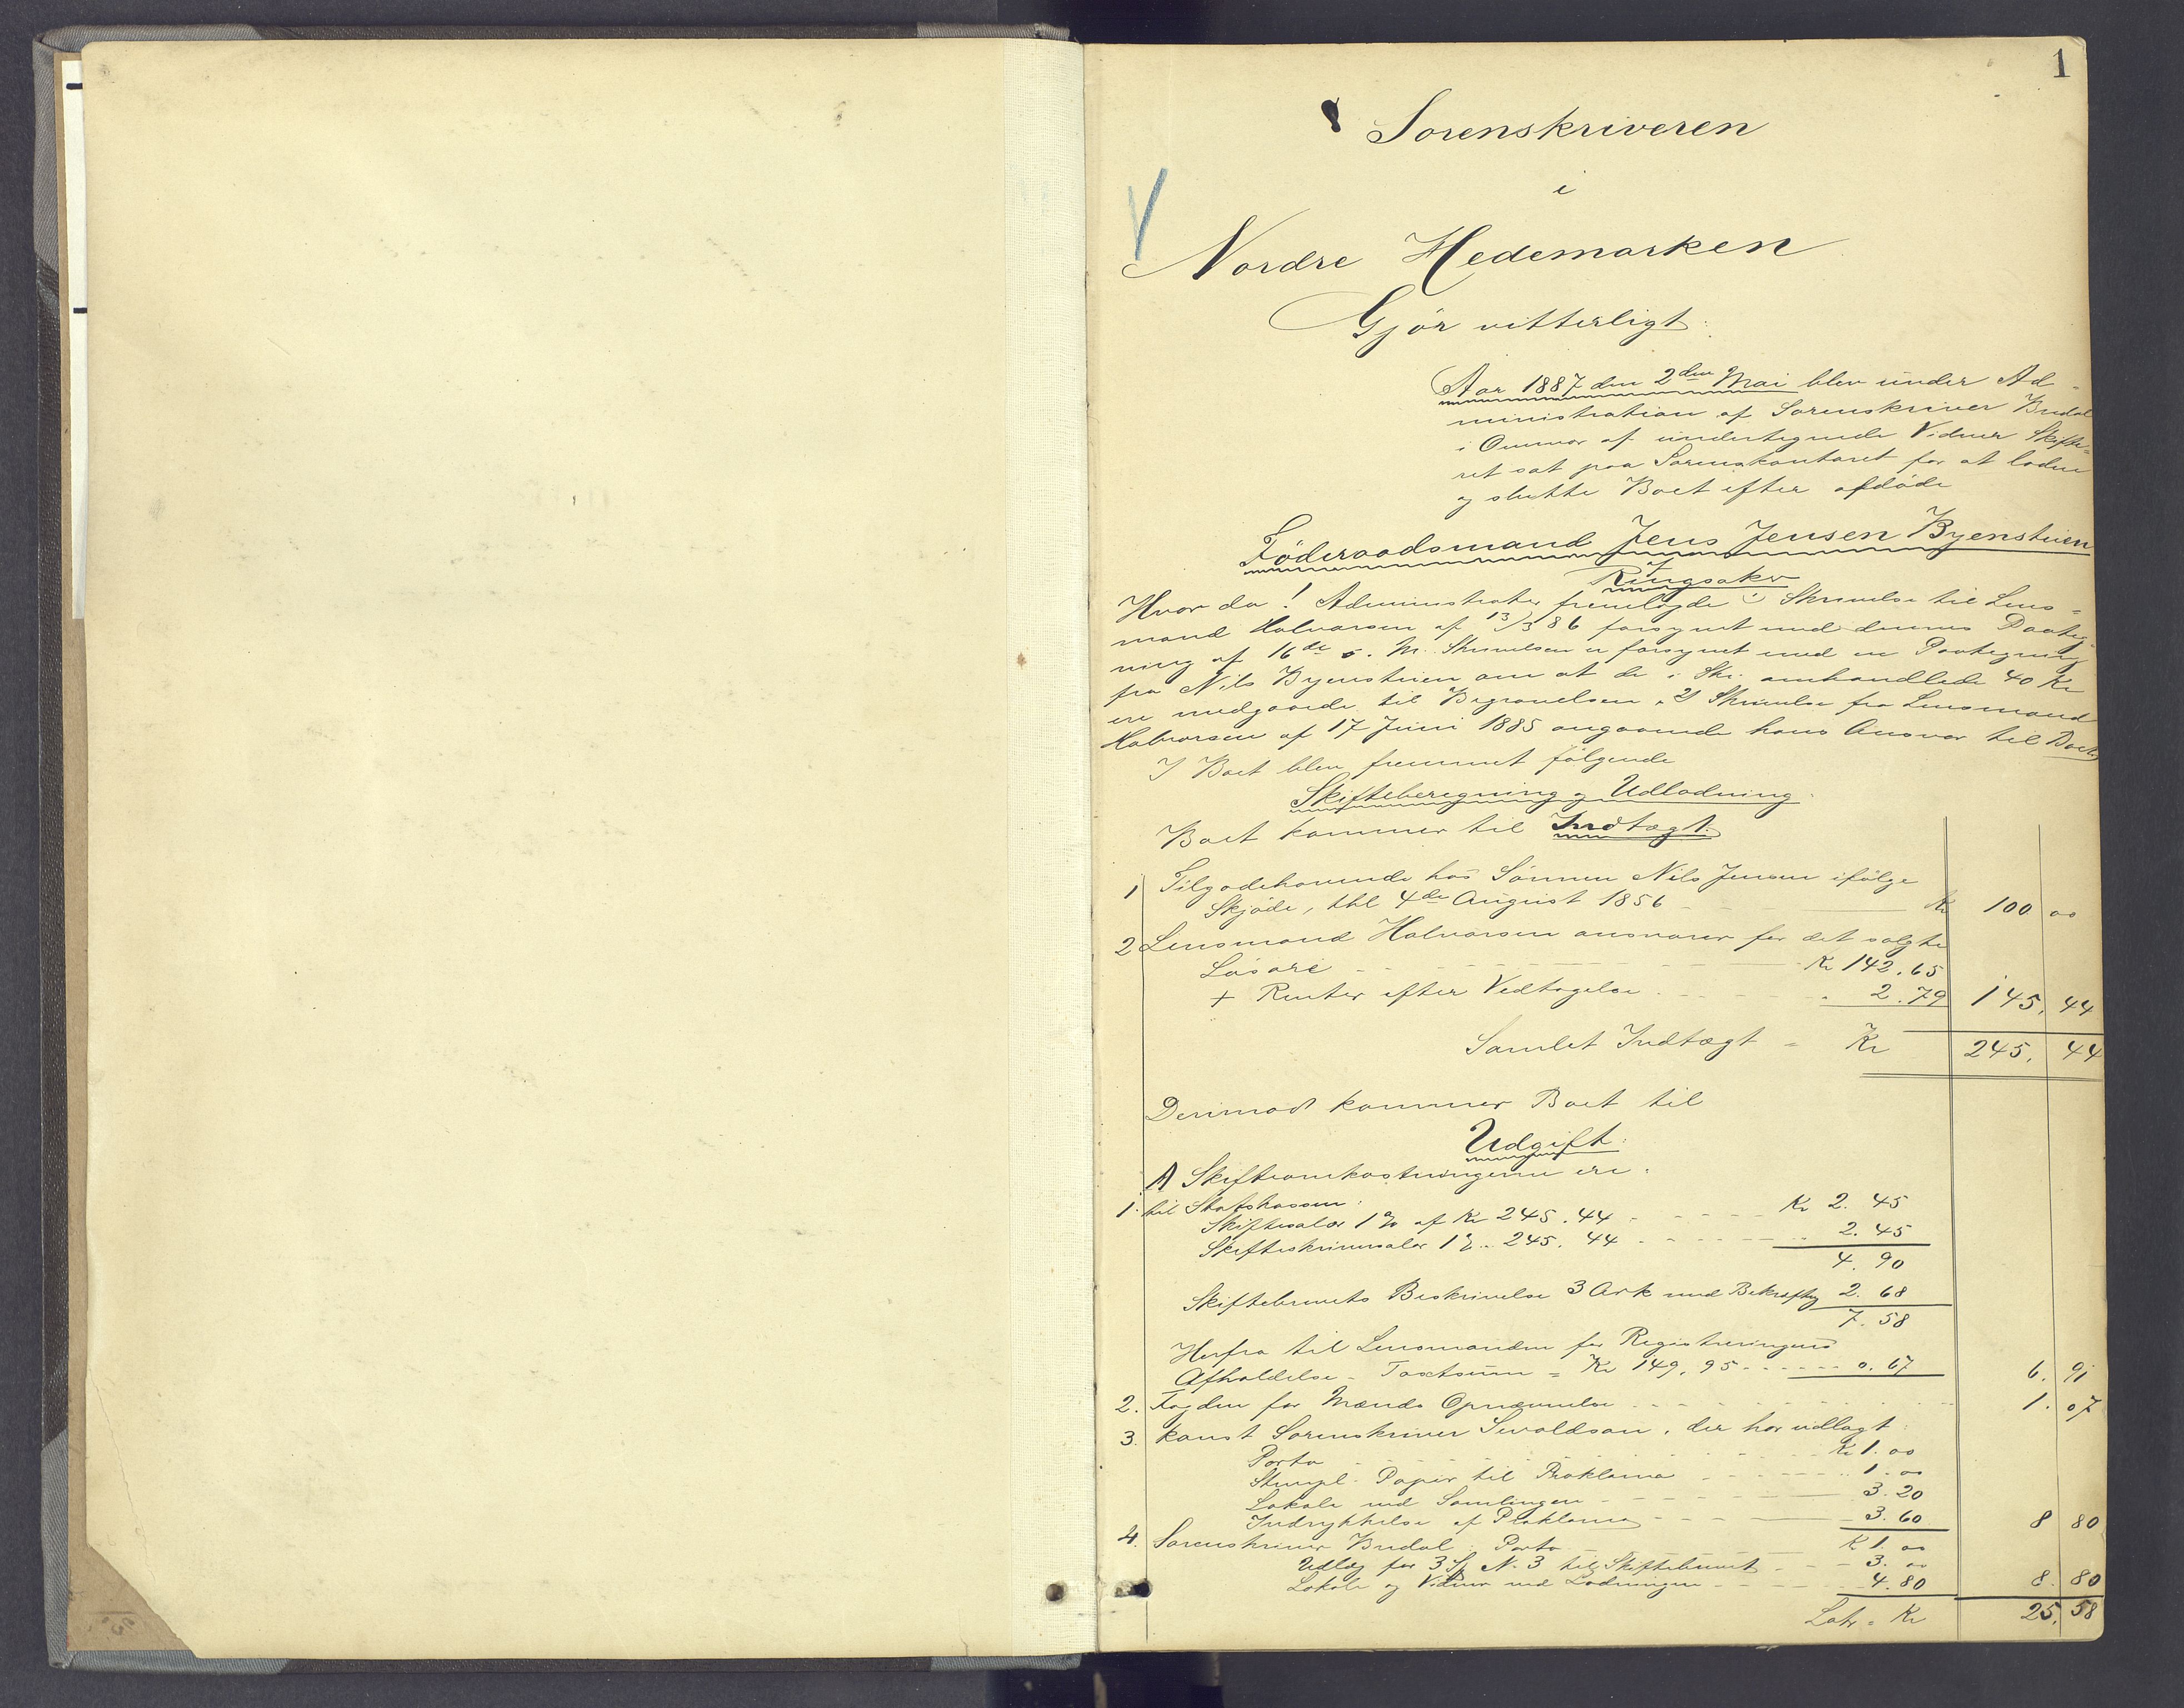 1
Sorenskriveren
i
Nordre Hedemarken
Gjör vitterligt:
Aar 1887 den 2den Mai blev under Ad-
ministration af Sorenskriver Budal
i Overvær af undertegnede Vidner Skifte-
ret sat paa Sorenskontoret for at lodne
og slutte Boet efter afdöde
Föderaadsmand Jens Jensen Byenstuen
af
Ringsaker
Hvor da! Administrator fremlagde 1) Skrivelse til Lens-
mand Halvorsen af 13/3 86 forsynet med dennes Paateg-
ning af 16de s. M. Skrivelsen er forsynet med en Paategning
fra Nils Byenstuen om at de i Skr. omhandlede 40 Kr
ere medgaaede til Begravelsen, 2) Skrivelse fra Lensmand
Halvorsen af 17 Juni 1885 angaaende hans Ansvar til Boet,
I Boet blev fremmet fölgende
Skifteberegning og Udlodning.
Boet kommer til Indtægt.
1 Tilgodehavende hos Sönnen Nils Jensen ifölge
Skjöde, thl 4de August 1856 Kr 100 00
2 Lensmand Halvorsen ansvarer for det solgte
Lösöre Kr 142.65
+ Renter efter Vedtagelse 2.79 145. 44
Samlet Indtægt = Kr 245. 44
Derimod kommer Boet til
Udgift:
A Skifteomkostningerne ere:
1. til Statskassen:
Skiftesalær 1 % af Kr 245.44 Kr 2. 45
Skifteskriversalær 1 % " 245. 44 2. 45
4. 90
Skiftebrevets Beskrivelse 3 Ark med Bekræftg 2. 68
7. 58
Herfra til Lensmanden for Registreringens
Afholdelse - Taxtsum = Kr 149.95 0. 67 6. 91
2. Fogden for Mænds Opnævnelse 1. 07
3. konst Sorenskriver Sivaldson, der har udlagt:
Porto Kr 1. 00
Stempl. Papir til Proklama 1. 00
Lokale ved Samlingen 3. 20
Indrykkelse af Proklama 3. 60 8 80
4. Sorenskriver Budal: Porto K 1. 00
Udlæg for 3 Sp N. 3 til Skiftebrevet 3. 00
Lokale og Vidner ved Lodningen 4. 80 8. 80
Latr = Kr 25. 58